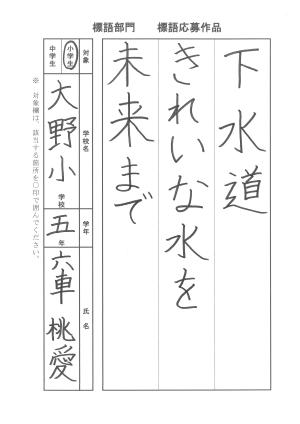 標語部門　標語応募作品
下水道
きれいな水を
未来まで
対象
小学生
中学生
学校名
大野小学校
学年
五年
氏名
六車 桃愛
※ 対象欄は、該当する箇所を○印で囲んでください。